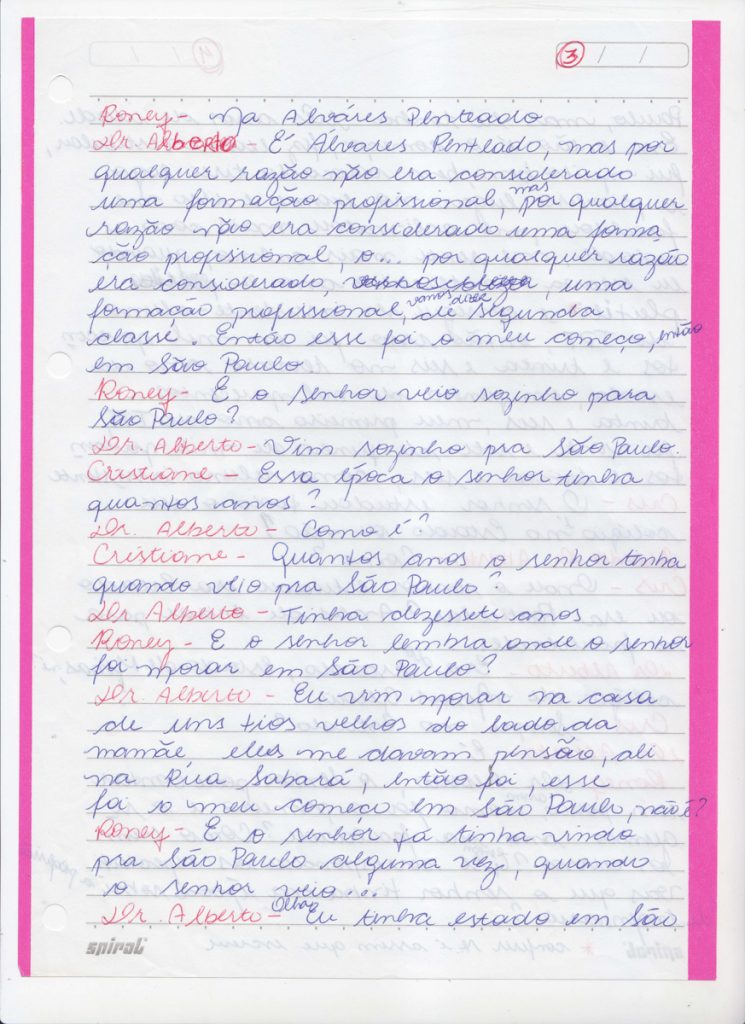 3 / /
Roney - na Álvares Penteado
Dr. Alberto - É Álvares Penteado, mas por
qualquer razão não era considerado
uma formação profissional, mas por qualquer
razão não era considerado uma forma
ção profissional, o... por qualquer razão
era considerado, vamos dizer, uma
formação profissional, vamos dizer de segunda
classe. Então esse foi o meu começo, então
em São Paulo
Roney - E o senhor veio sozinho para
São Paulo?
Dr. Alberto - Vim sozinho pra São Paulo.
Cristiane - Essa época o senhor tinha
quantos anos?
Dr. Alberto - Como é?
Cristiane - Quantos anos o senhor tinha
quando veio pra São Paulo?
Dr. Alberto - Tinha dezessete anos
Roney - E o senhor lembra onde o senhor
foi morar em São Paulo?
Dr. Alberto - Eu vim morar na casa
de uns tios velhos do lado da
mamãe, eles me davam pensão, ali
na Rua Sabará, então foi, esse
foi o meu começo em São Paulo, não é?
Roney - E o senhor já tinha vindo
pra São Paulo alguma vez, quando
o senhor veio...
Dr. Alberto - Olha, Eu tinha estado em São
spiral